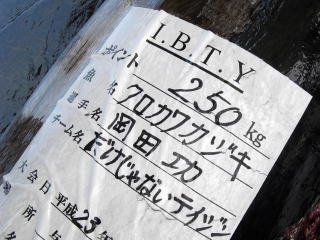 I.B.T.Y
ポイント 250 kg
魚名 クロカワカジキ
選手名 岡田 功
チーム名 だけじゃないテイジン
大会月 平成23年
場所